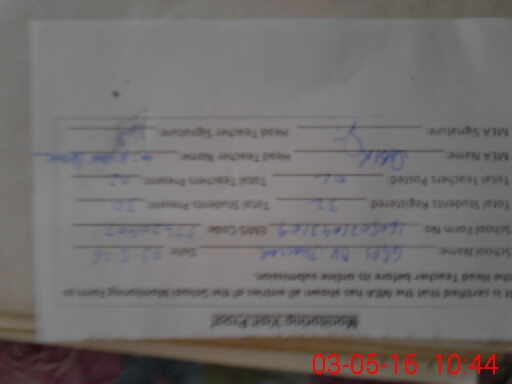 Monitoring Visit Proof
It is certified that the MEA has shown all entries of the School Monitoring Form to
the Head Teacher before its online submission.
School Name: GGPS Date: 03.5.16
School Form No: EMIS Code:
Total Students Registered: 32 Total Students Present: 30
Total Teachers Posted: 02 Total Teachers Present: 02
MEA Name: Head Teacher Name:
MEA Signature: Head Teacher Signature:
03-05-16 10:44